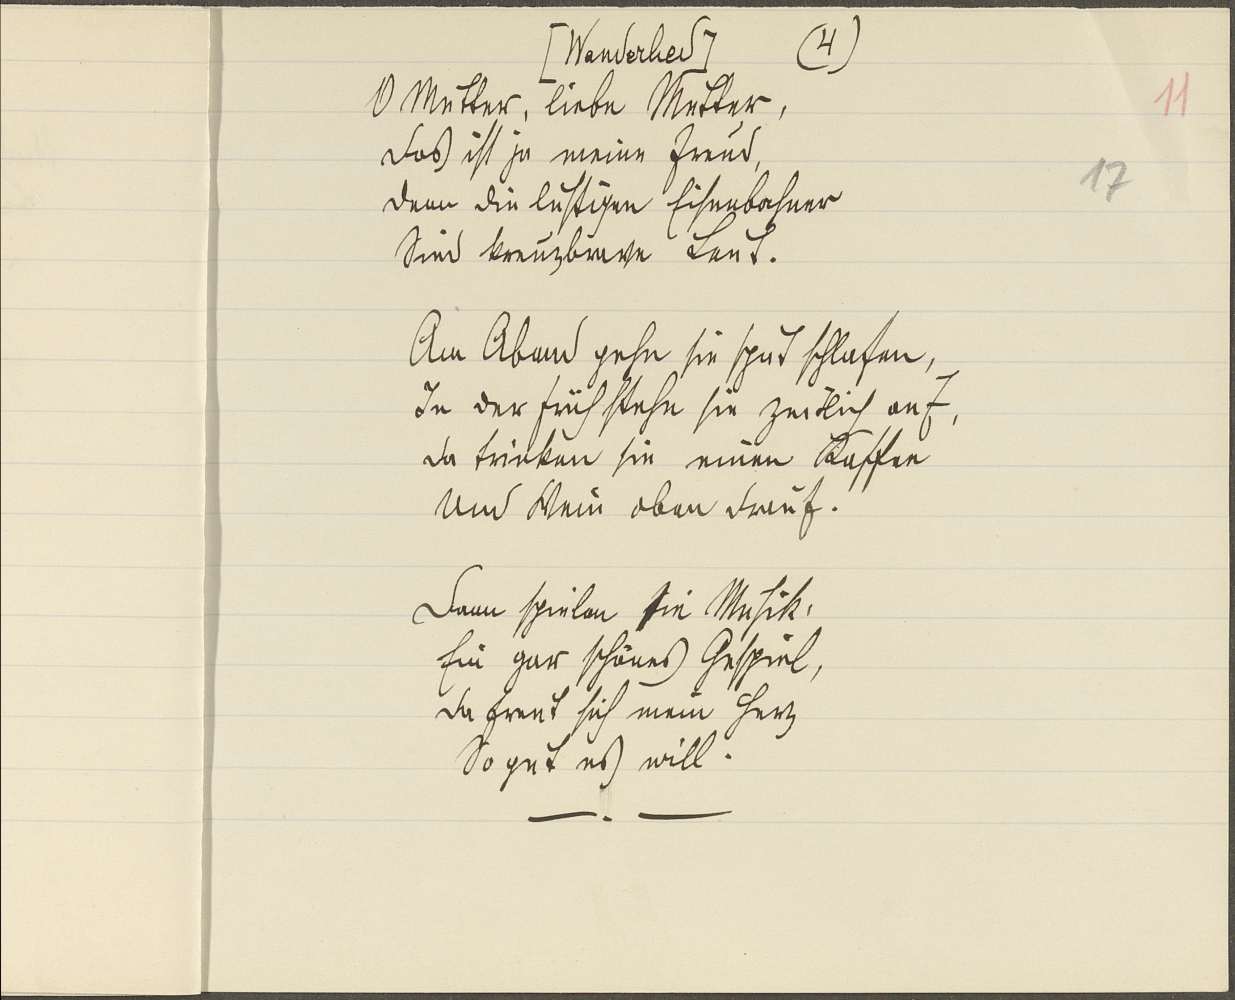 [Wanderlied] (4)
11
17
O Mutter, liebe Mutter,
das ist ja meine Freud,
denn die lustigen Eisenbahner
Sind kreuzbrave Leut.
Am Abend gehn sie spät schlafen,
In der Früh stehn sie zeitlich auf,
da trinken sie einen Kaffee
Und Wein oben drauf.
Dann spielen sie Musik,
Ein gar schönes Gespiel,
da freut sich mein Herz
So gut es will.